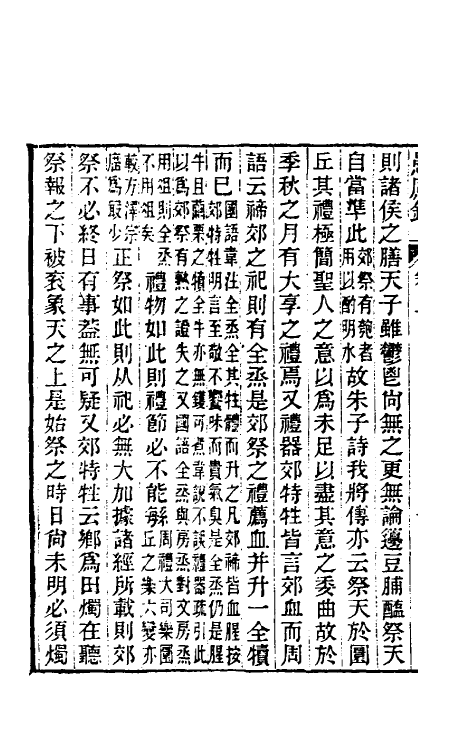 則諸侯之膳天子雖鬱鬯尙無之更無論籩豆脯醢祭天
自當準此郊祭有匏者用以酌明水故朱子詩我將傳亦云祭天於圜
丘其禮極簡聖人之意以爲未足以盡其意之委曲故於
季秋之月有大享之禮焉又禮器郊特牲皆言郊血而周
語云禘郊之祀則有全烝是郊祭之禮薦血并升一全犢
而已國語韋注全烝全其牲體而升之凡郊禘皆血腥按郊特牲明言至敬不饗味而貴氣臭是全烝仍是腥
牛且繭栗之犢全牛亦無鑊可煮韋說不誤禮器疏引此以爲郊祭有熟之證失之又國語全烝與房烝對文房烝
用俎則全烝不用俎矣禮物如此則禮節必不能緐周禮大司樂圜丘之樂六變亦
較方澤宗廟爲最少正祭如此則从祀必無大加據諸經所載則郊
祭不必終日有事葢無可疑又郊特牲云鄉爲田燭在聽
祭報之下被袞象天之上是始祭之時日尙未明必須燭